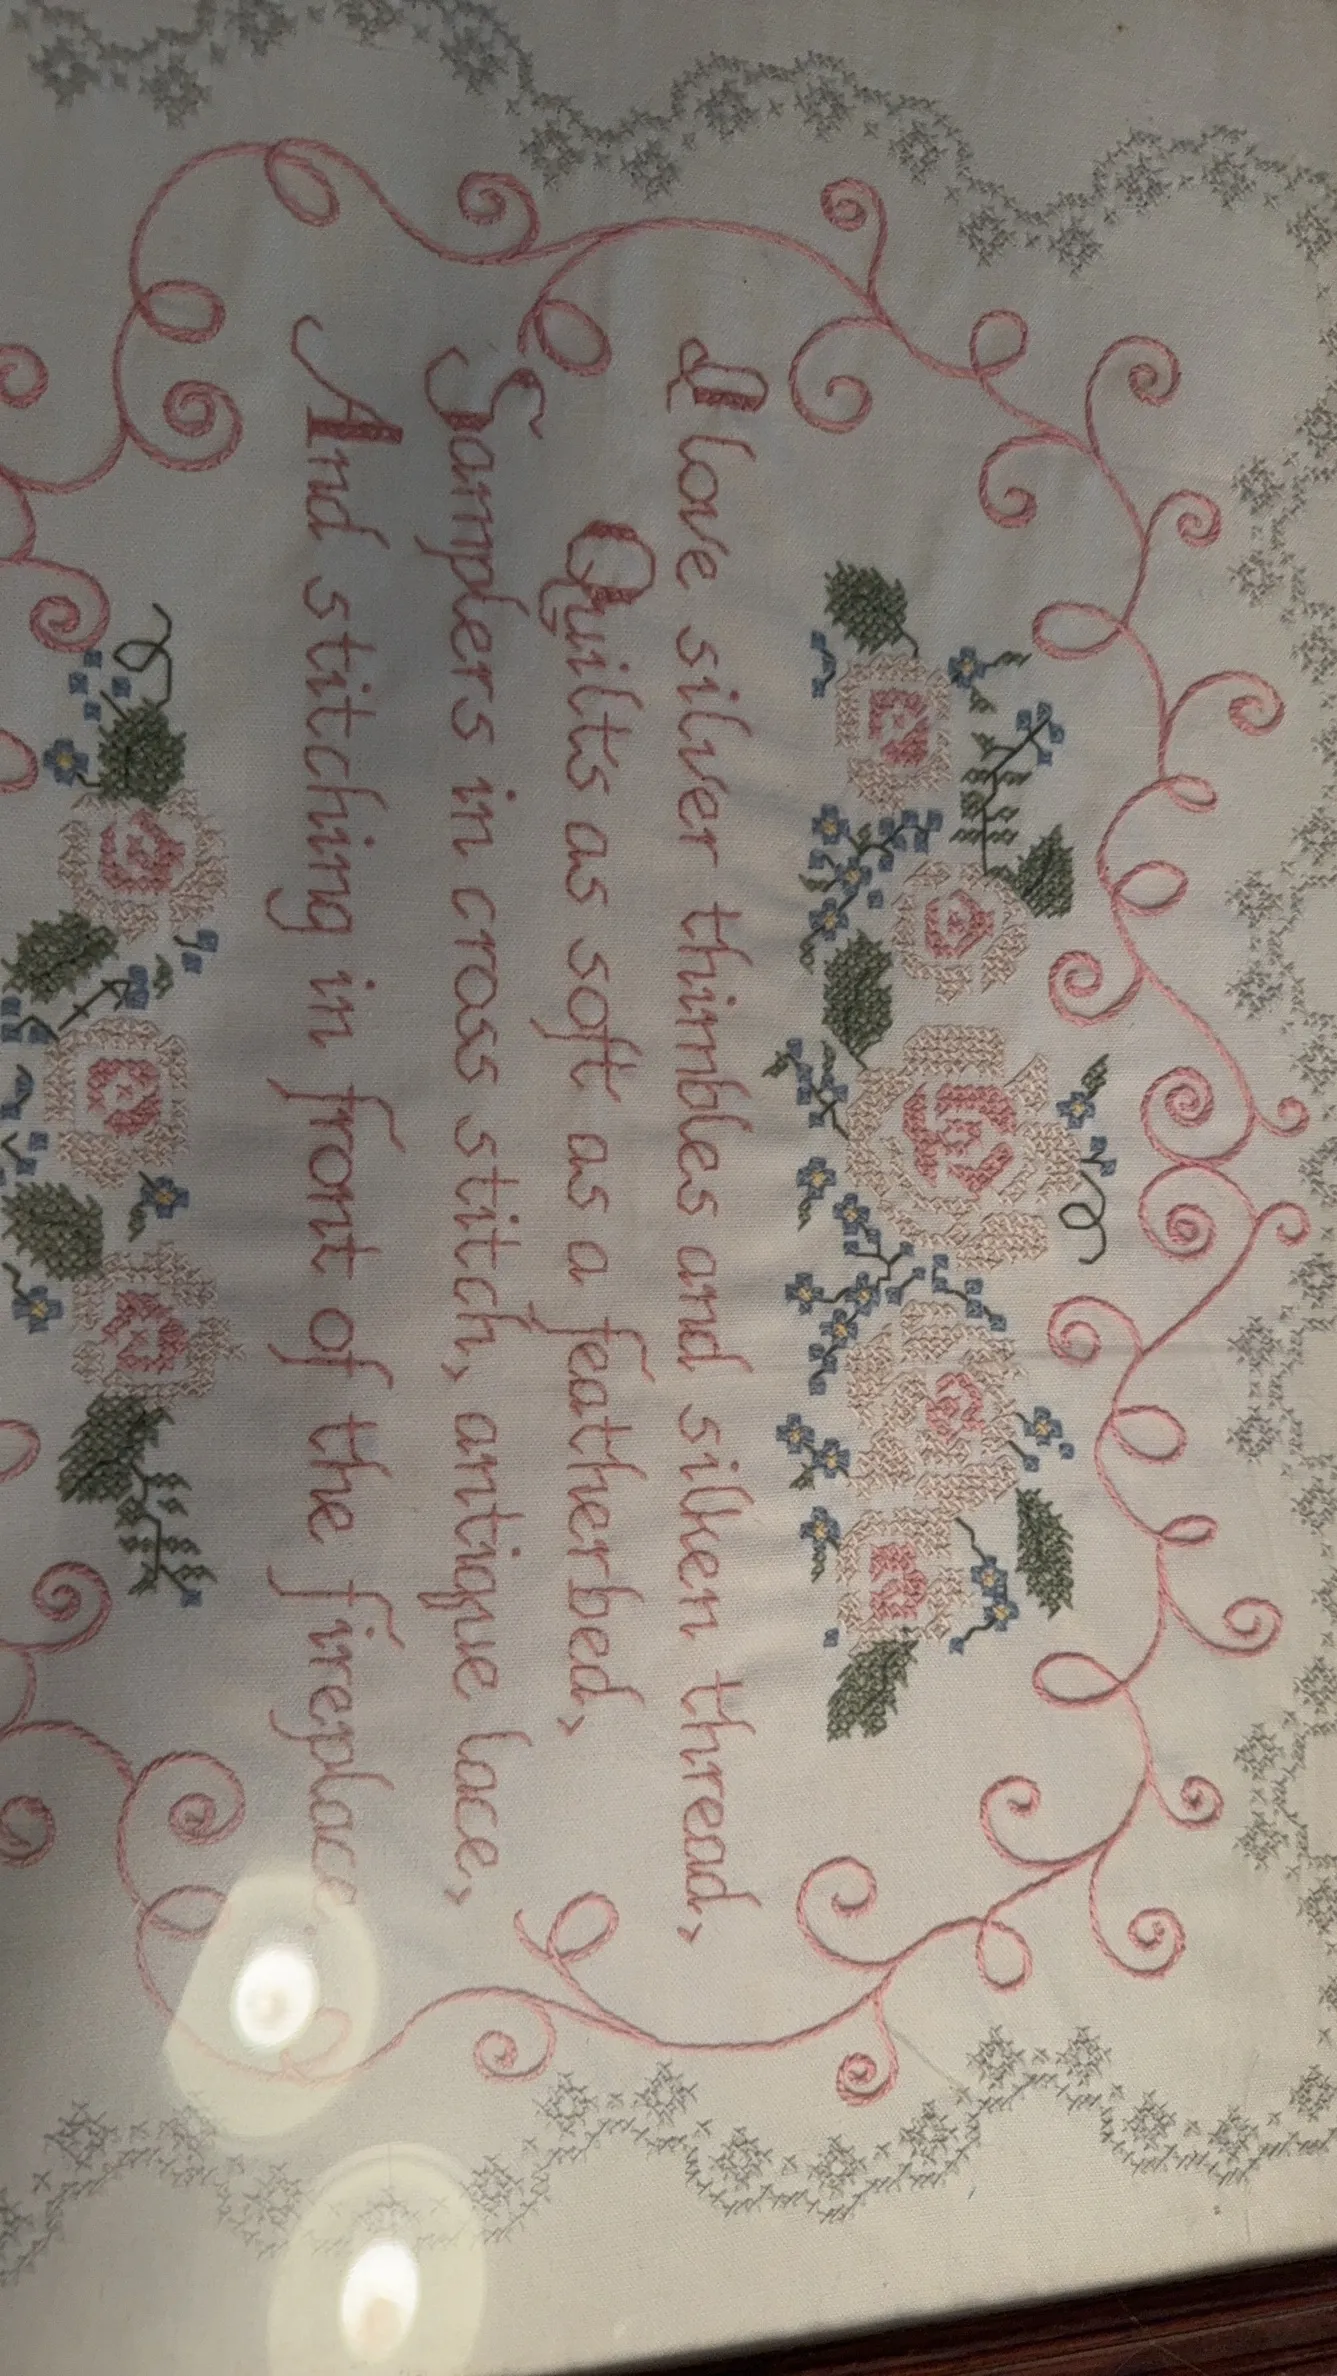 I love silver thimbles and silken thread,
Quilts as soft as a featherbed,
Samplers in cross stitch, antique lace,
And stitching in front of the fireplace